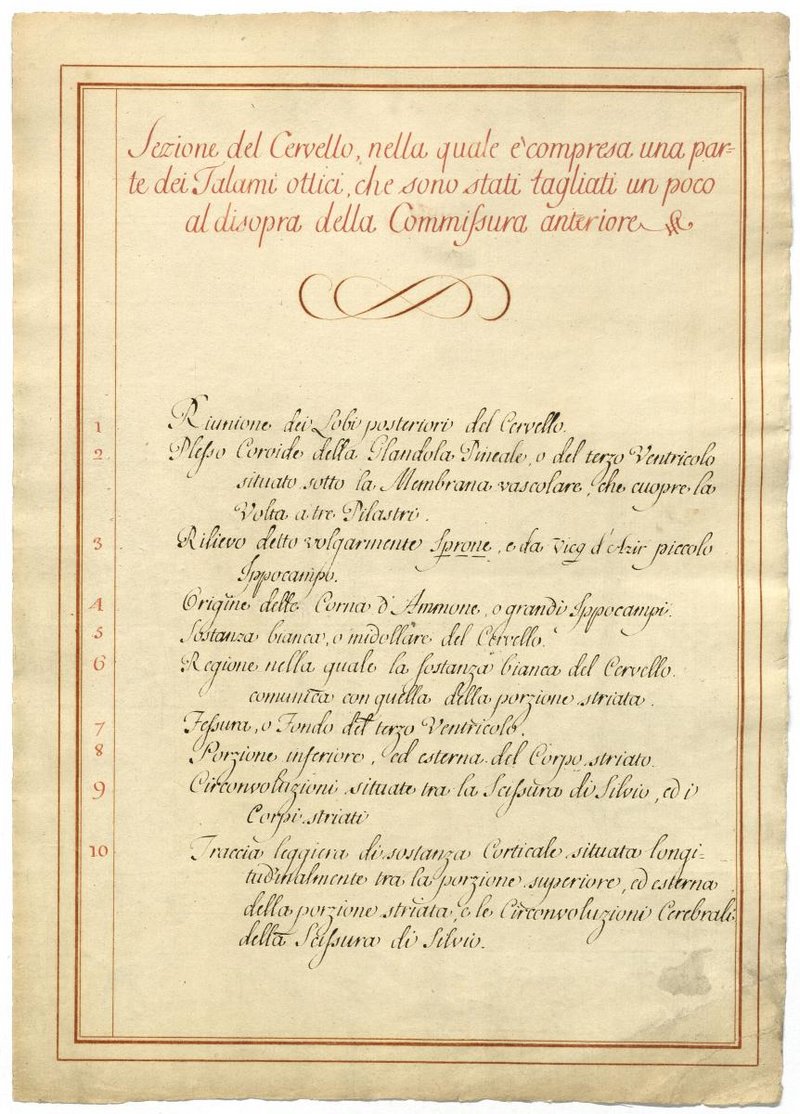 Sezione del Cervello, nella quale è compresa una par=
te dei Talami ottici, che sono stati tagliati un poco
al disopra della Commissura anteriore
1 Riunione dei Lobi posteriori del Cervello.
2 Plesso Coroide della Glandola Pineale, o del terzo Ventricolo
situato sotto la Membrana vascolare, che cuopre la
Volta a tre Pilastri.
3 Rilievo detto volgarmente Sprone, e da Vicq d'Azir piccolo
Ippocampo.
4 Origine delle Corna d'Ammone, o grandi Ippocampi.
5 Sostanza bianca, o midollare del Cervello.
6 Regione nella quale la sostanza bianca del Cervello
comunica con quella della porzione striata.
7 Fessura, o Fondo del terzo Ventricolo.
8 Porzione inferiore, ed esterna del Corpo striato.
9 Circonvoluzioni situate tra la Scissura di Silvio, ed i
Corpi striati
10 Traccia leggiera di sostanza Corticale situata longi=
tudinalmente tra la porzione superiore, ed esterna
della porzione striata, e le Circonvoluzioni Cerebrali
della Scissura di Silvio.